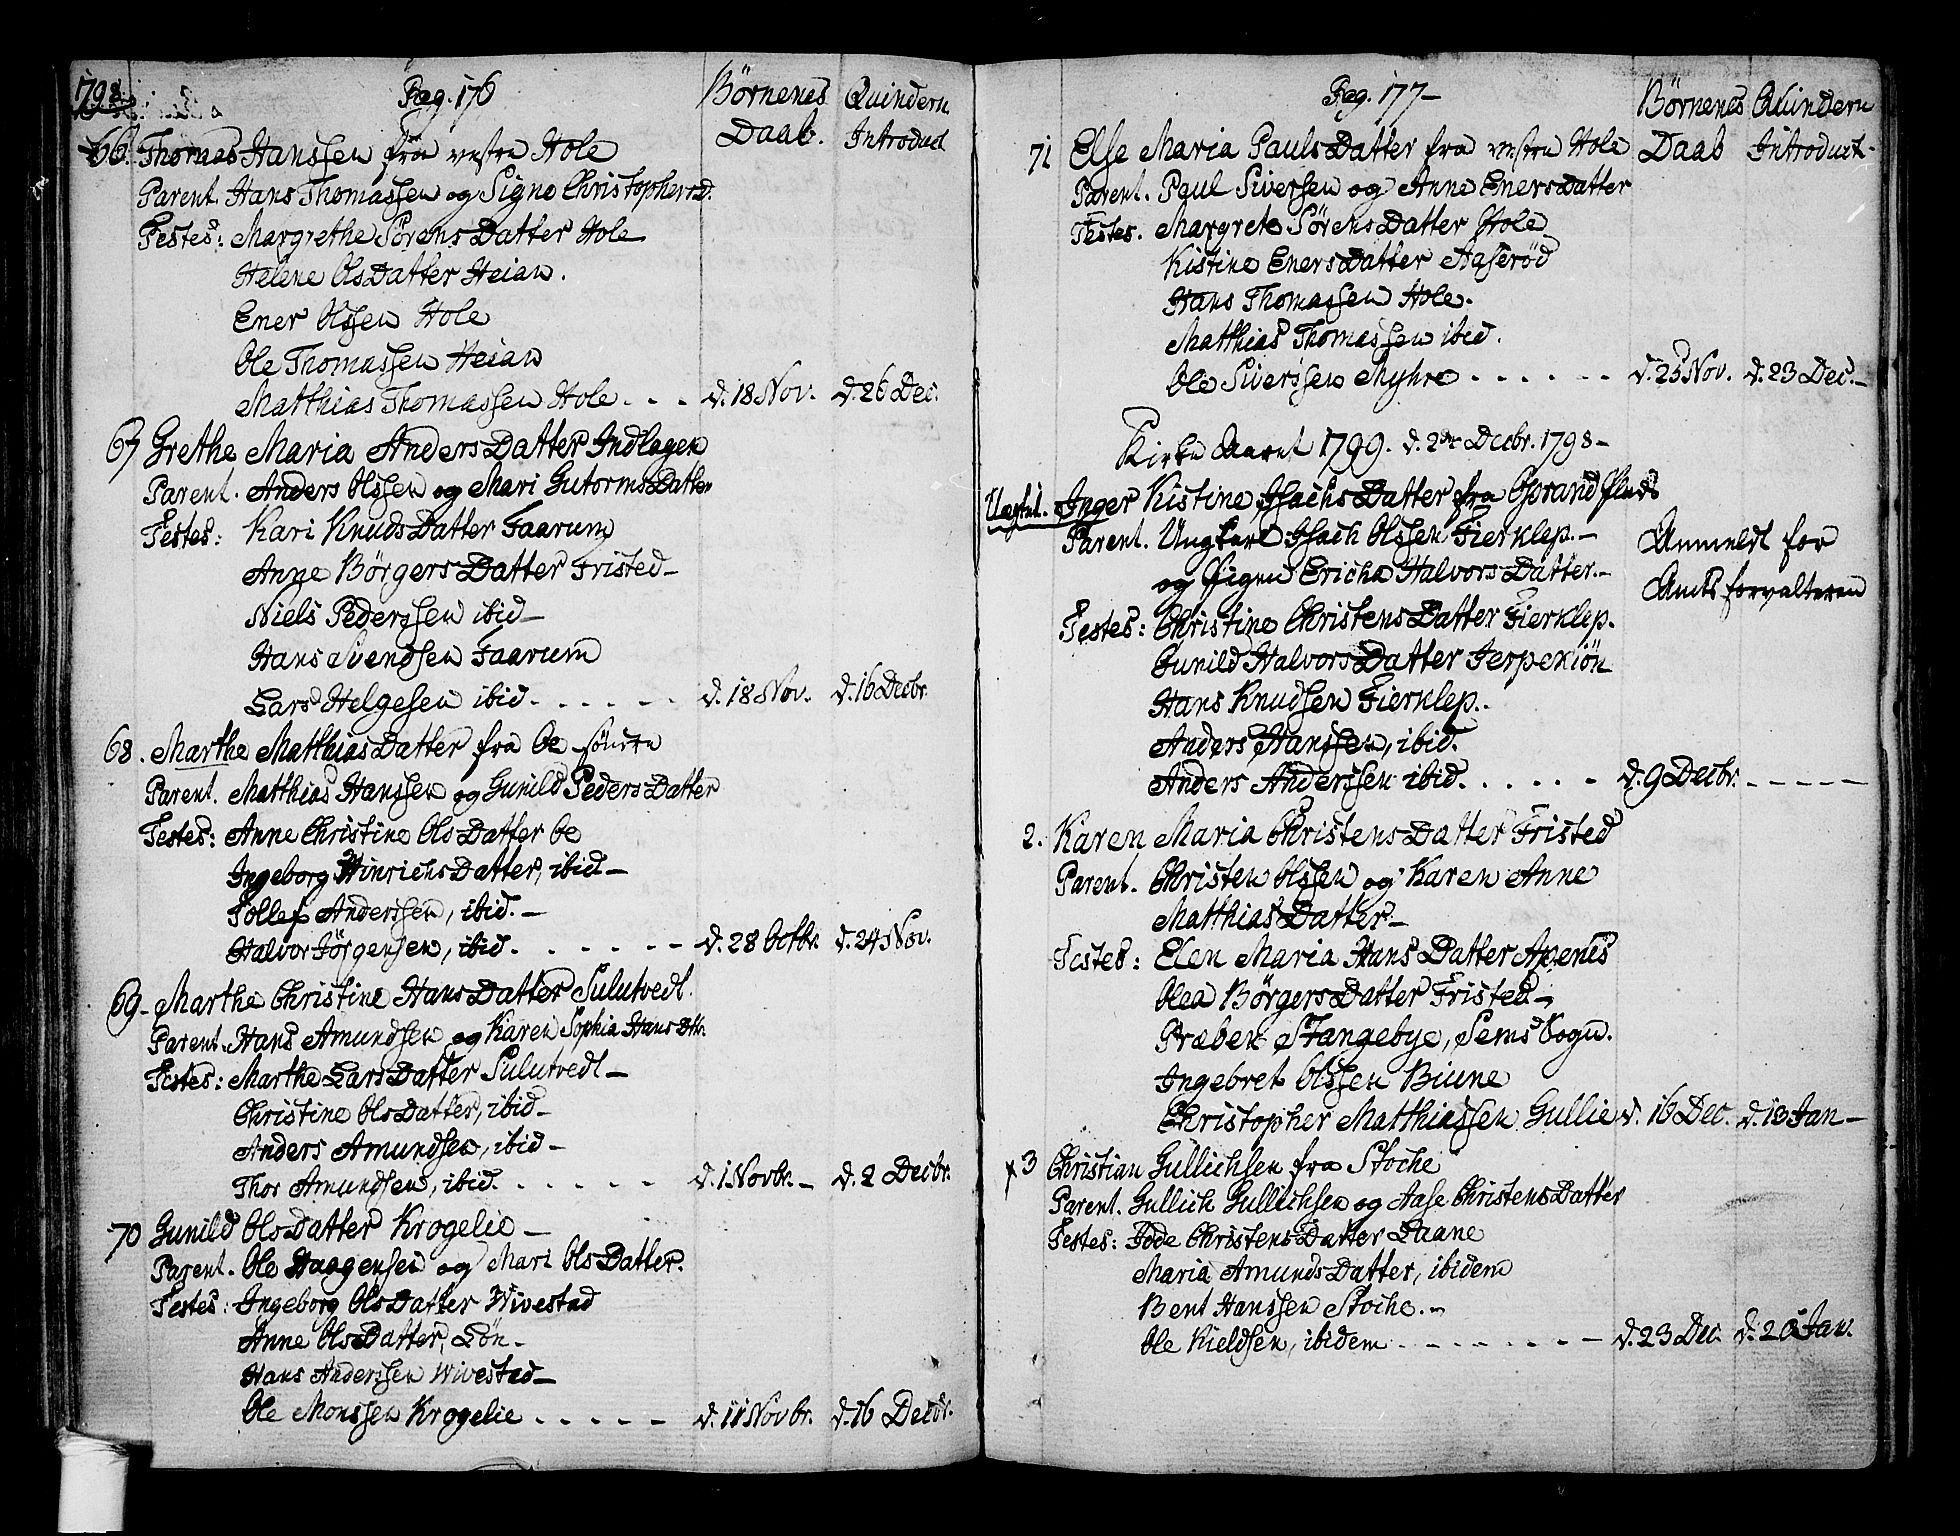 1798.
Pag. 176
Börnenes Daab.
Qvindern Introduct
66. Thomas Hanssen fra vestre Hole
Parent. Hans Thomassen og Signe Christophersd.
Testes: Margrethe SörensDatter Hole
Helene OlsDatter Heian.
Ener Olssen Hole
Ole Thomassen Heian
Matthias Thomassen Hole . . . d. 18 Nov. d. 26 Dec.
67 Grethe Maria AndersDatter Indlagen
Parent. Anders Olssen og Mari GutormsDatter
Testes: Kari KnudsDatter Faarum
Anne BörgersDatter Fristed
Niels Pederssen ibid
Hans Svendsen Faarum
Lars Helgesen ibid . . . . . . d. 18 Nov. d. 16 Decbr.
68. Marthe MatthiasDatter fra Oe söndre
Parent. Matthias Hanssen og Gunild PedersDatter
Testes: Anne Christine OlsDatter Oe
Ingeborg HinrichsDatter, ibid
Tollef Anderssen, ibid.
Halvor Jörgensen, ibid. . . . . . d. 28 Octbr. d. 24 Nov.
69 Marthe Christine HansDatter Sulutvedt.
Parent. Hans Amundsen og Karen Sophia Hans Dtr.
Testes: Marthe LarsDatter Sulutvedt
Christine OlsDatter, ibid
Anders Amundsen, ibid
Thor Amundsen, ibid. . . . . . d. 1 Novbr. d. 2 Decbr.
70 Gunild OlsDatter Krogelie
Parent. Ole Haagensen og Mari OlsDatter.
Testes: Ingeborg OlsDatter Wivestad
Anne OlsDatter, Lön
Hans Anderssen Wivestad
Ole Monssen Krogelie . . . . . d. 11 Novbr. d. 16 Decbr.
Pag. 177
Börnenes Daab
Qvindern Introduct.
71 Else Maria PaulsDatter fra vestre Hole
Parent. Paul Siversen og Anne EnersDatter
Testes. Margrete SörensDatter Hole
Kistine EnersDatter Aaseröd
Hans Thomassen Hole.
Matthias Thomassen ibid.
Ole Siverssen Myhre . . . . . . d. 25 Nov. d. 23 Dec.
Kirke Aaret 1799. d. 2de Decbr. 1798
Uægte 1. Inger Kistine IsachsDatter fra
Parent. Ungkarl Isach Olssen Fierklep.
og Pigen Ericha HalvorsDatter.
Anmeldt for Amtsforvalteren
Testes: Christine ChristensDatter Fierklep.
Gunild HalvorsDatter Jerpekiön
Hans Knudsen Fierklep.
Anders Hanssen, ibid.
Anders Anderssen ibid. . . . . . d. 9 Decbr.
2. Karen Maria ChristensDatter Fristed
Parent. Christen Olssen og Karen Anne
MatthiasDatter.
Testes: Elen Maria HansDatter Apenes
Olea BörgersDatter Fristed
Præben Stangebye, Sems Sogn.
Ingebret Olssen Biune
Christopher Matthiassen Gullie d. 16 Dec. d. 13 Jan
3 Christian Gullichsen fra Stoche
Parent. Gullich Gullichsen og Aase ChristensDatter
Testes: Tode ChristensDatter Laane
Maria AmundsDatter, ibidem
Bent Hanssen Stoche.
Ole Kieldsen, ibidem . . . . . . d. 23 Dec. d. 20 Jan.